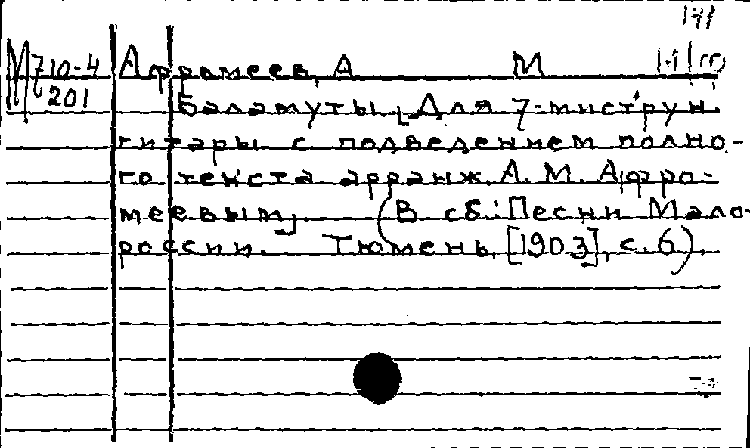 М 710-4 Афромеев, А М
201 Баламуты, [Для 7-миструн.
гитары с подведением полно-
го текста арранж. А. М. Афро-
меевым] (В сб.: Песни Мало-
россии. Тюмень, [1903], с. 6).